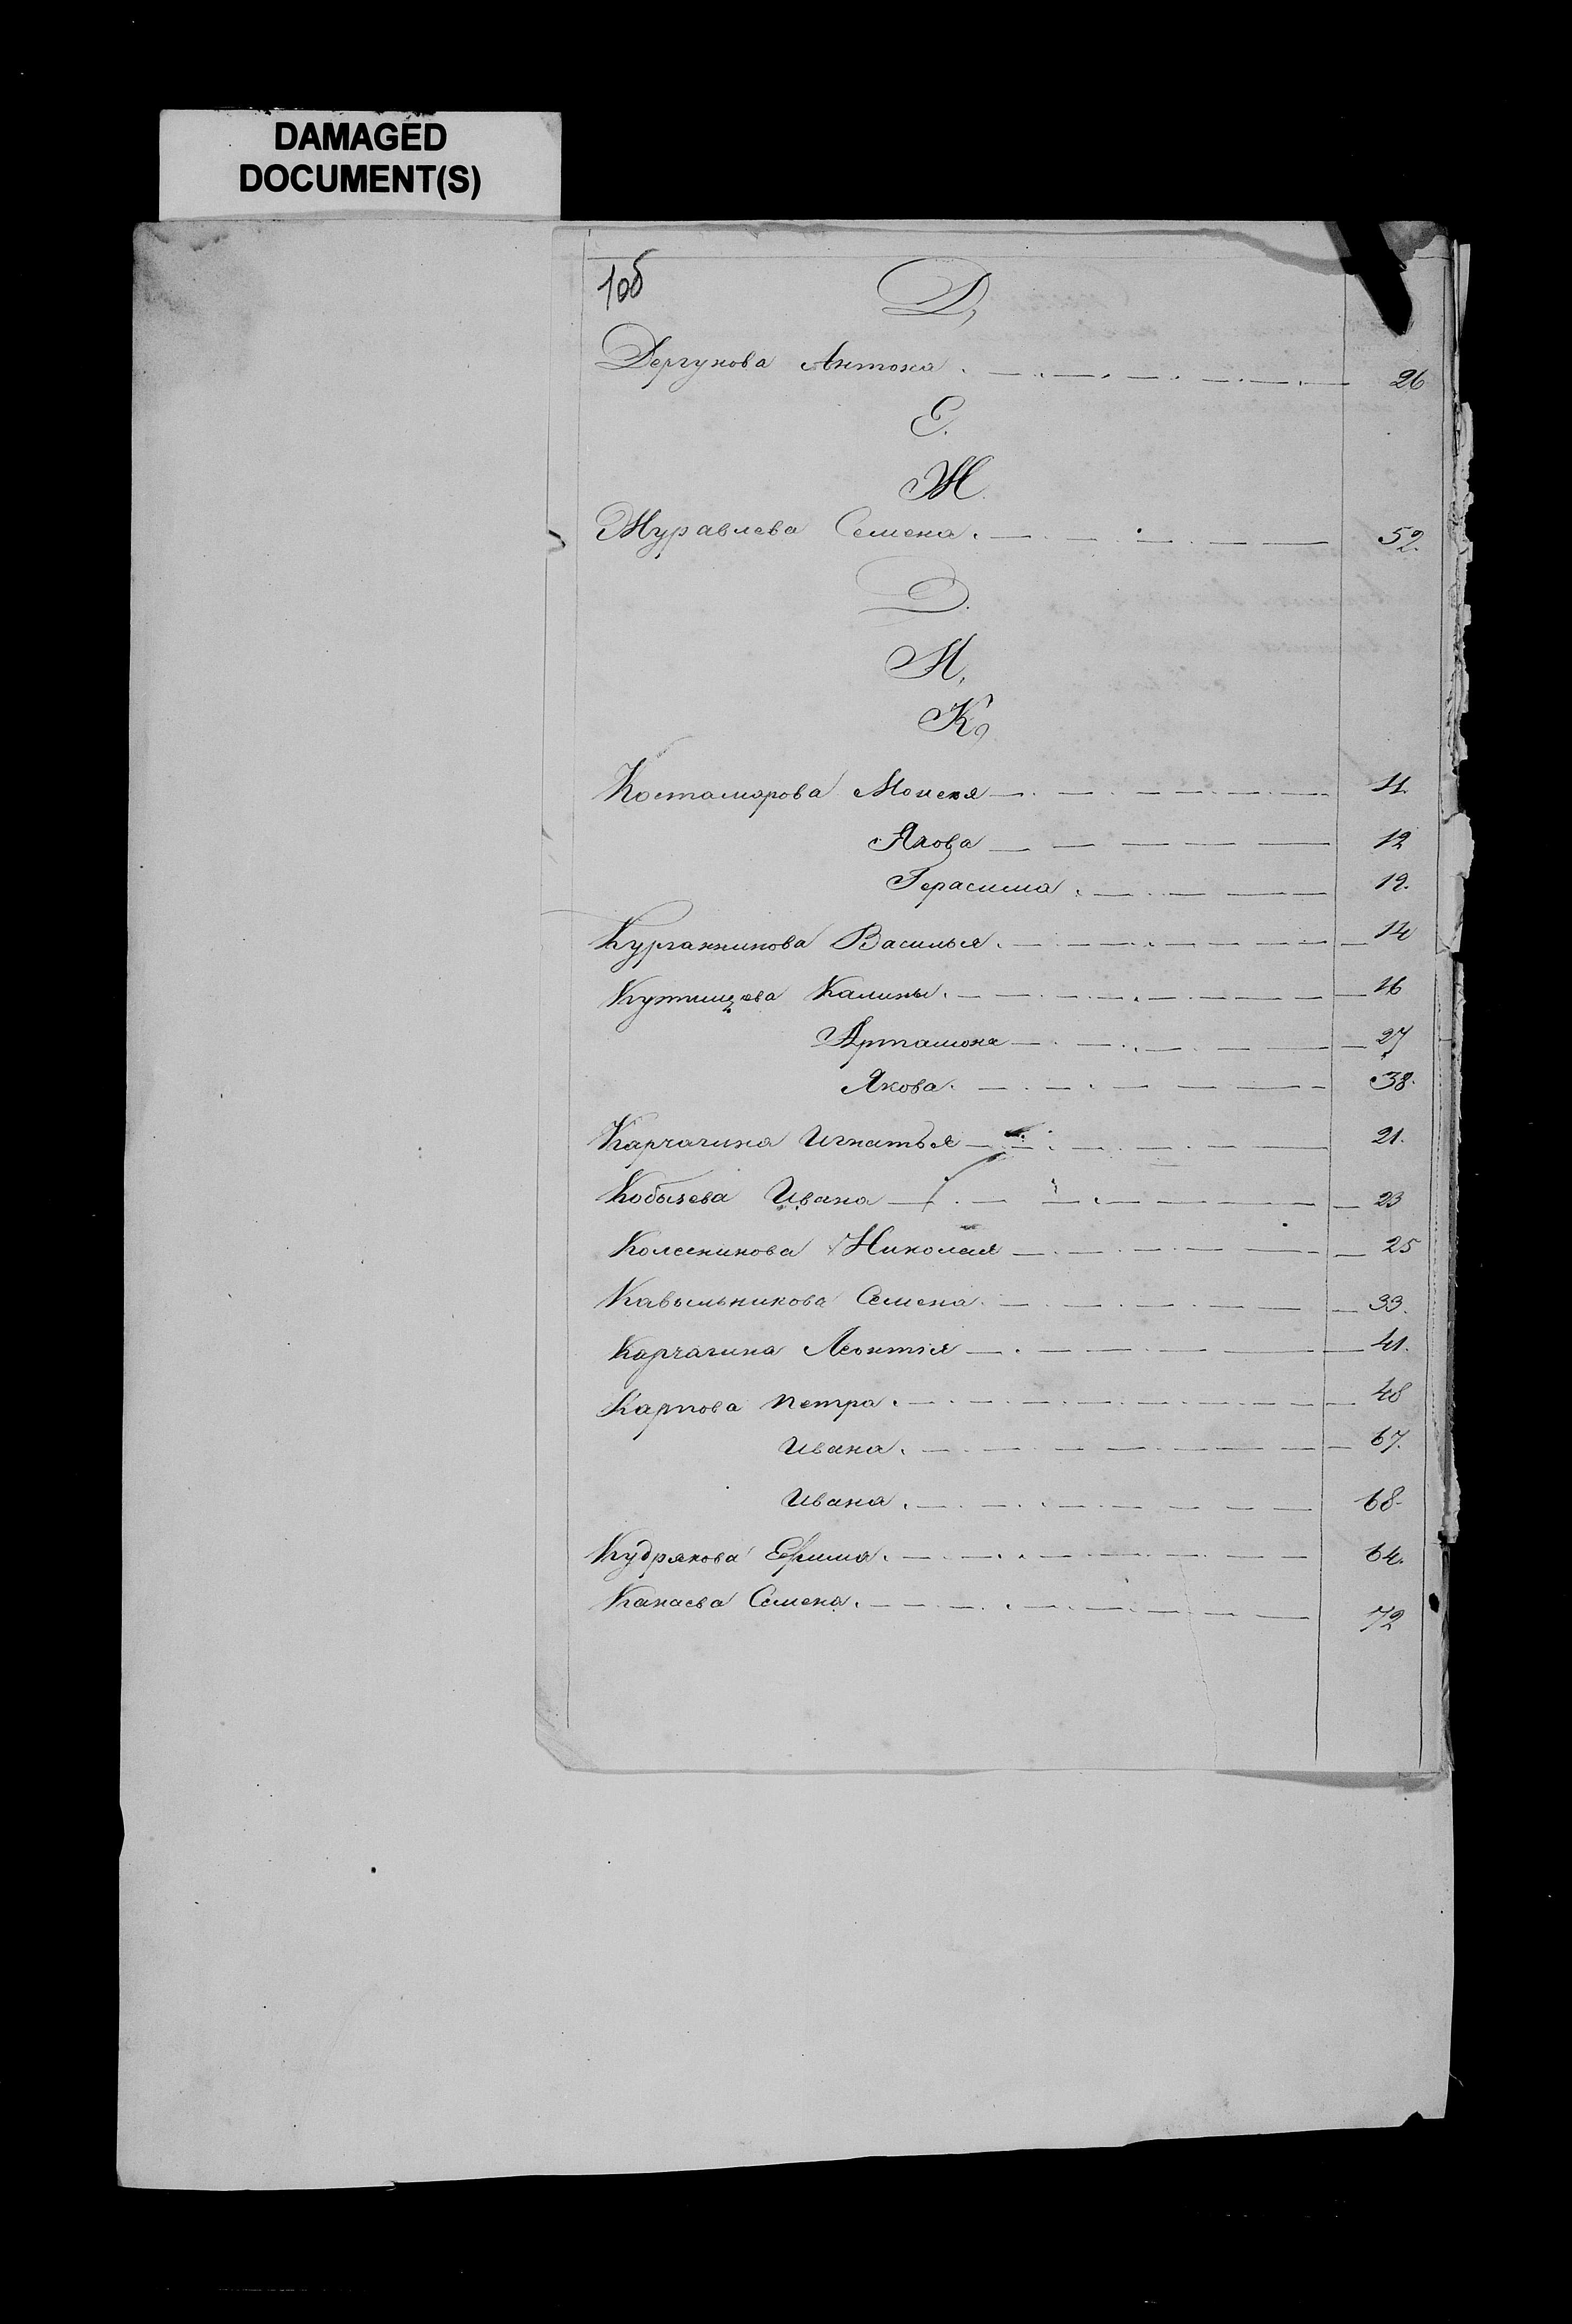 DAMAGED
DOCUMENT(S)
1об
Д,
Дергунова Антона 26
Е.
Ж.
Журавлева Семена. 52.
З.
И,
К,
Костамарова Моисея 11.
Якова 12
Герасима. 12.
Курганникова Василья. 14
Кутищева Калины. 16
Артамона 27
Якова. 38.
Карчагина Игнатья 21.
Кобызева Ивана 23
Колесникова Николая 25
Кавыльникова Семена. 33.
Карчагина Леонтія 41.
Карпова Петра. 48
Ивана. 67.
Ивана. 68.
Кудрякова Ефима. 64.
Канаева Семена. 72